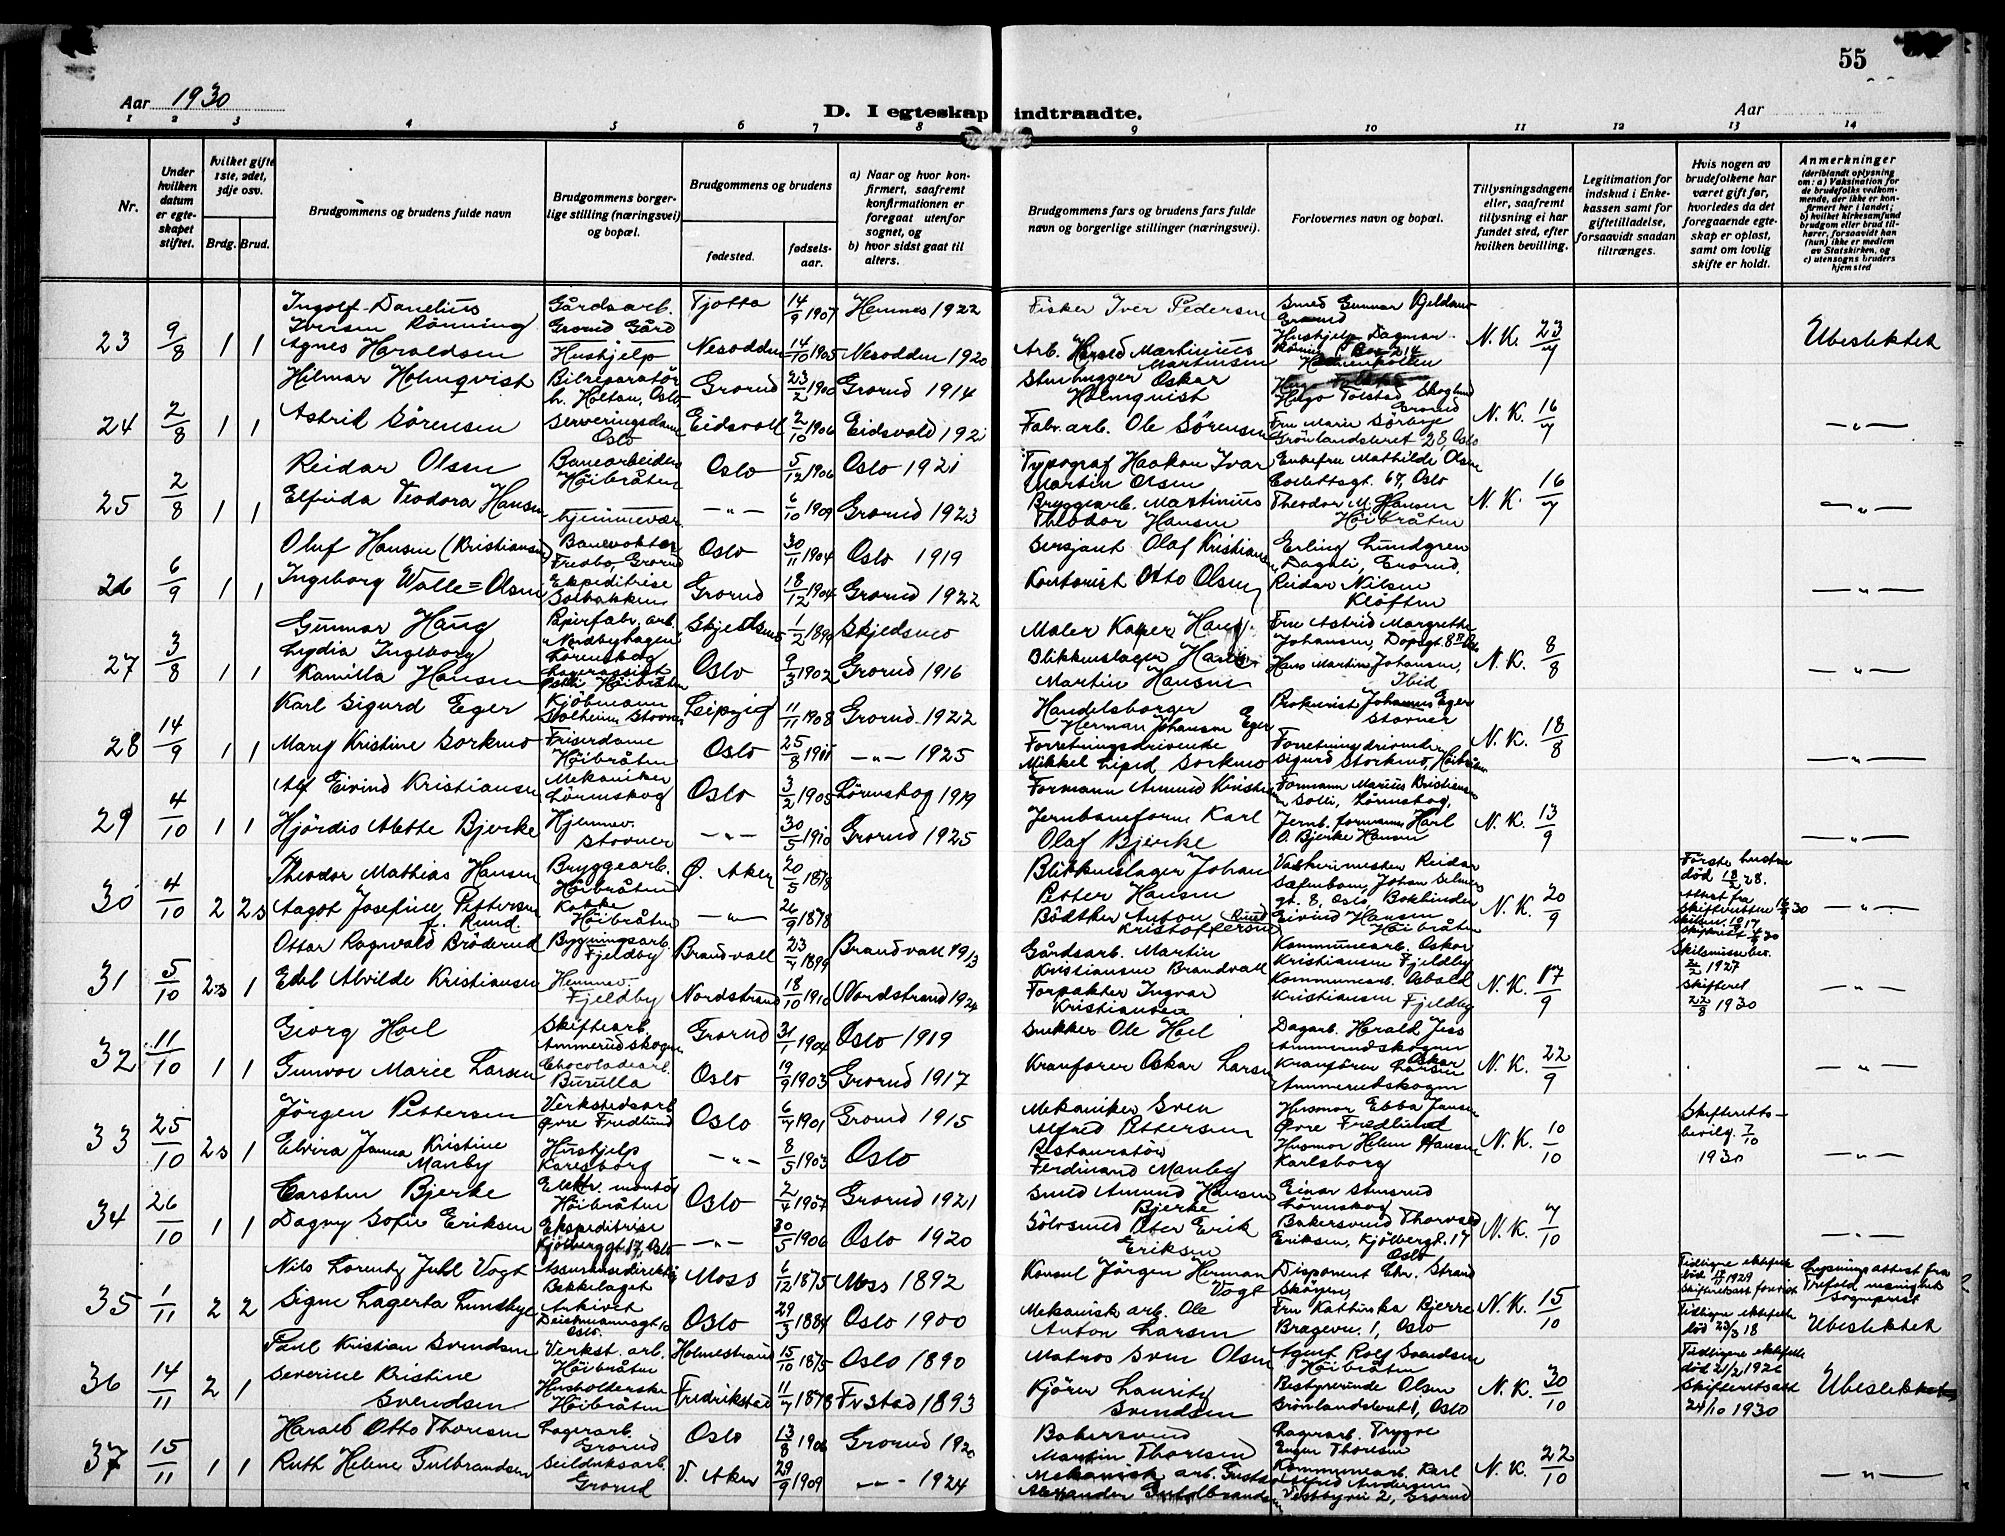 55
Aar 1930
D. I egteskap indtraadte.
Aar
1 2 3 4 5 6 7 8 9 10 11 12 13 14
Nr.
Under hvilken datum er egteskapet stiftet.
Hvilket gifte 1ste, 2det, 3dje osv.
Brdg. Brud.
Brudgommens og brudens fulde navn
Brudgommens borgerlige stilling (næringsvei) og bopæl.
Brudgommens og brudens
fødested. fødselsaar.
a) Naar og hvor konfirmert, saafremt konfirmationen er foregaat utenfor sognet, og
b) hvor sidst gaat til alters.
Brudgommens fars og brudens fars fulde navn og borgerlige stillinger (næringsvei).
Forlovernes navn og bopæl.
Tillysningsdagene eller, saafremt tillysning ei har fundet sted, efter hvilken bevilling.
Legitimation for indskud i Enkekassen samt for giftetilladelse, forsaavidt saadan tiltrænges.
Hvis nogen av brudefolkene har været gift før, hvorledes da det foregaaende egteskap er opløst, samt om lovlig skifte er holdt.
Anmerkninger
(deriblandt oplysning om: a) Vaksination for de brudefolks vedkommende, der ikke er konfirmert her i landet; b) hvilket kirkesamfund brudgom eller brud tilhører, forsaavidt han (hun) ikke er medlem av Statskirken, og c) utensogns bruders hjemsted
23 9/8 1 1
Ingolf Danelius Iversen Rönning Gårdsarb. Grorud Gård Tjötta 14/9 1907 Hemnes 1922 Fisker Iver Pedersen
Agnes Haraldsen Hushjelp Nesodden 14/10 1905 Nesodden 1920 Arb. Harald Martinius Martinsen N.K. 23/7 Ubeslektet
24 2/8 1 1
Hilmar Holmqvist Bilreparatør Grorud 23/2 1900 Grorud 1914 Stenhugger Oskar Holmquist Hugo Tolstad Skoglund Grorud
Astrid Sörensen Serveringsdame Oslo Eidsvoll 2/10 1906 Eidsvold 192 Fabr. arb. Ole Sörensen Grönlandsleret 28, Oslo N.K. 16/7 —"—
25 2/8 1 1
Reidar Olsen Banearbeider Höibråten Oslo 5/12 1906 Oslo 1921 Typograf Haakon Ivar Martin Olsen Enkefru Mathilde Olsen
Elfrida Teodora Hansen hjemmevær. —"— 6/10 1909 Grorud 1923 Bryggearb. Martinius Theodor Hansen Theodor M. Hansen Höibråten N.K. 16/7 —"—
26 6/9 1 1
Oluf Hansen (Kristiansen) Banevokter Oslo 30/11 1904 Oslo 1919 Sersjant Olaf Kristiansen Erling Lundgren Dagali, Grorud.
Ingeborg Walle=Olsen Ekspeditrise Solbakken Grorud 18/12 1904 Grorud 1922 Kontorist Otto Olsen Reidar Nilsen Klöften —"—
27 3/8 1 1
Gunnar Haug Papirfabr. arb. Nordbyhagen Lörenskog Skjedsmo 1/2 1899 Skjedsmo Maler Kasper Haug Fru Astrid Margrethe Johansen,
Lydia Ingeborg Kamilla Hansen Höibråten Oslo 9/3 1902 Grorud 1916 Blikkenslager Hans Martin Hansen Hans Martin Johansen, Ibid N.K. 8/8 —"—
28 14/9 1 1
Karl Sigurd Eger Kjöbmann Stovner Leipzig 11/11 1908 Grorud 1922 Handelsborger Herman Johansen Eger Prokurist Johannes Eger Stovner
Mary Kristine Sorkmo Friserdame Höibråten Oslo 25/8 —"— 1925 Forretningsdrivende Mikkel Sorkmo Forretningsdrivende Sigurd Storkmo, Höibråten N.K. 18/8 —"—
29 4/10 1 1
Alf Eivind Kristiansen Mekaniker Lörenskog Oslo 3/2 1905 Lörenskog 1919 Formann Amund Kristiansen Formann Marius Kristiansen Solli, Lörenskog,
Hjördis Alette Bjerke Hjemmev. Stovner —"— 30/5 1910 Grorud 1925 Jernbaneform. Karl Olaf Bjerke Jernb. formann Karl O. Bjerke Hansen N.K. 13/9 —"—
30 4/10 2 2s
Theodor Mathias Hansen Bryggearb. Höibråten Ø. Aker 20/5 1878 Blikkenslager Johan Petter Hansen
Aagot Josefine Pettersen f. Rund. Kokke Höibråten —"— 26/9 1878 Bödtker Anton Kristoffersen Rund Eivind Hansen Höibråten N.K. 20/9 Förste hustru död 18/2 28. Attest fra Skifteretten —"—
31 5/10 2s 1
Ottar Ragnvald Bröderud Bygningsarb. Fjeldby Brandvall 23/7 1899 Brandvall 1913 Gårdsarb. Martin Kristiansen Brandvall Kommunearb. Oskar Kristiansen Fjeldby Skilsmissebev. 1927
Edel Alvilde Kristiansen Hemmev. Fjeldby Nordstrand 18/10 1910 Nordstrand 1924 Forpakter Ingvar Kristiansen Kommunearb. Kristiansen Fjeldby N.K. 17/9 Skifteret 22/8 1930 —"—
32 11/10 1 1
Georg Hoel Skiftearb. Ammerudskogen Grorud 31/1 1904 Oslo 1919 Snekker Ole Hoel Dagarb. Harald Jess Ammerudskogen
Gunvor Marie Larsen Chocoladearb. Oslo 19/9 1903 Grorud 1917 Kranförer Oskar Larsen Kranförer Oskar Larsen Ammerudskogen N.K. 22/9 —"—
33 25/10 2s 1
Jörgen Pettersen Verkstedsarb. Övre Fredlund Oslo 6/7 1901 Grorud 1915 Mekaniker Sven Alfred Pettersen Husmor Ebba Jansen Övre Fredlund Skifteretts-bevilg. 7/10 1930
Elvira Janna Kristine Manby Hushjelp Karlsborg —"— 8/5 1903 Oslo Restauratör Ferdinand Manby Husmor Helen Hansen Karlsborg N.K. 10/10 —"—
34 26/10 1 1
Carsten Bjerke Elektr. montör Höibråten Oslo 2/4 1907 Grorud 1921 Smed Amund Hansen Bjerke Einar Stensrud Lörenskog
Dagny Sofie Eriksen Ekspeditrise Kjölberggt. 17, Oslo —"— 30/5 1906 Oslo 1920 Sölvsmed Peter Erik Eriksen Bakersvend Thorvald Eriksen, Kjölberggt. 17 Oslo N.K. 7/10 —"—
35 1/11 2 2
Nils Lorentz Juhl Vogt Assuransedirektör Bekkelaget Moss 6/12 1875 Moss 1892 Konsul Jörgen Herman Vogt Disponent Chr. Strand Sköyen, Tidligere ektefelle död 1929 Lysningsattest fra Trefold. menighets sogneprest
Signe Lagerta Lundbye Arkivet Deichmannsgt. Oslo. Oslo 29/3 1884 Oslo 1900 Mekanisk arb. Ole Anton Larsen Fru Kathinka Bjerre Bragevn. 1, Oslo N.K. 15/10 Tidligere ektefelle död 23/3 18 Ubeslektet
36 14/11 2 1
Paul Kristian Svendsen Verkst. arb. Höibråten Holmestrand 15/10 1875 Oslo 1890 Matros Sven Olsen Agent Rolf Svendsen Höibråten Tidligere ektefelle död 21/2 1926
Severine Kristine Svendsen Husholderske Höibråten Fredrikstad 11/7 1878 Fr.stad 1893 Kjörer Lauritz Svendsen Bestyrerinde Olsen Grönlandsleret 1, Oslo N.K. 30/10 Skifteretsatt 24/10 1930 Ubeslektet
37 15/11 1 1
Harald Otto Thoresen Lagerarb. Grorud Oslo 13/8 1906 Grorud 1920 Bakersvend Martin Thoresen Lagerarb. Trygve Thoresen
Ruth Helene Gulbrandsen Seilduksarb. Grorud V. Aker 29/9 1909 —"— 1924 Mekanisk arb. Gustav Alexander Gulbrandsen Kommunearb. Karl Alfred Andersen Vestbyvei 2, Grorud N.K. 22/10 —"—